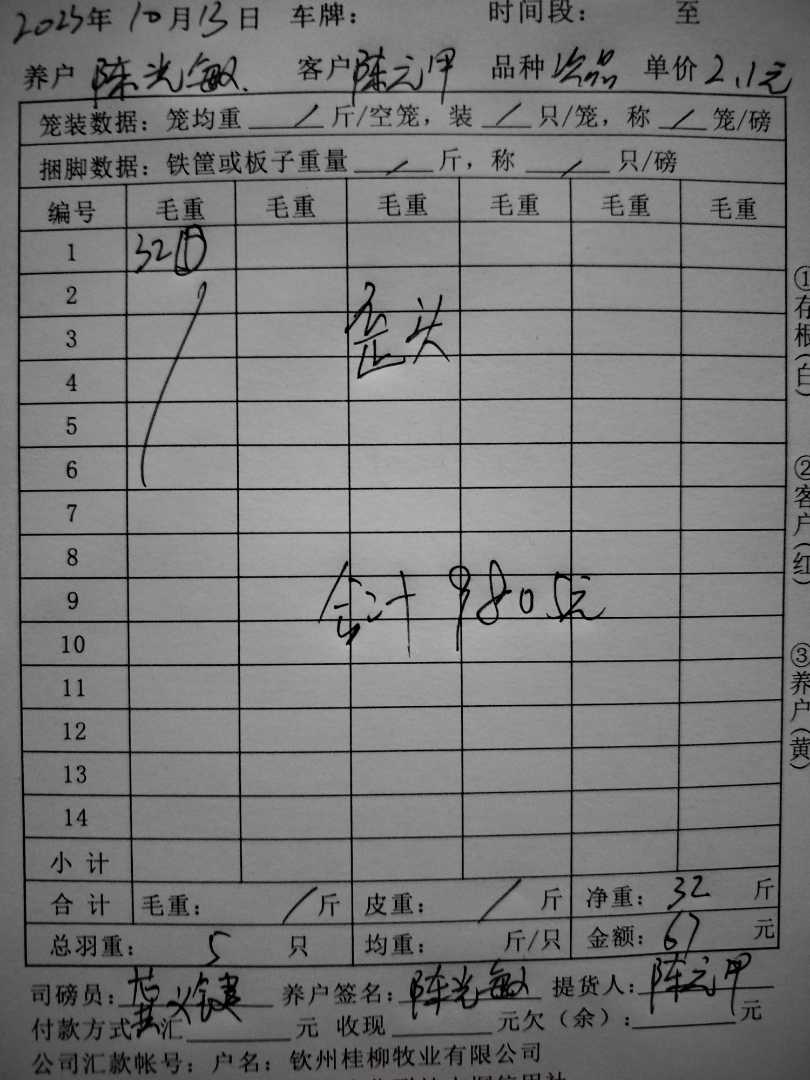 2023年10月13日 车牌： 时间段： 至
养户 陈光敏 客户 陈元甲 品种 次品 单价 2.1元
笼装数据：笼均重 / 斤/空笼，装 / 只/笼，称 / 笼/磅
捆脚数据：铁筐或板子重量 / 斤，称 / 只/磅
编号 毛重 毛重 毛重 毛重 毛重 毛重
1 32⑤
2
3 歪头
4
5
6
7
8
9 合计 980.5元
10
11
12
13
14
小计
合计 毛重： / 斤 皮重： / 斤 净重：32 斤
总羽重： 5 只 均重： 斤/只 金额：67 元
司磅员： 养户签名：陈光敏 提货人：陈元甲
付款方式 汇 元 收现 元欠（余）： 元
公司汇款帐号：户名：钦州桂柳牧业有限公司
①存根（白） ②客户（红） ③养户（黄）